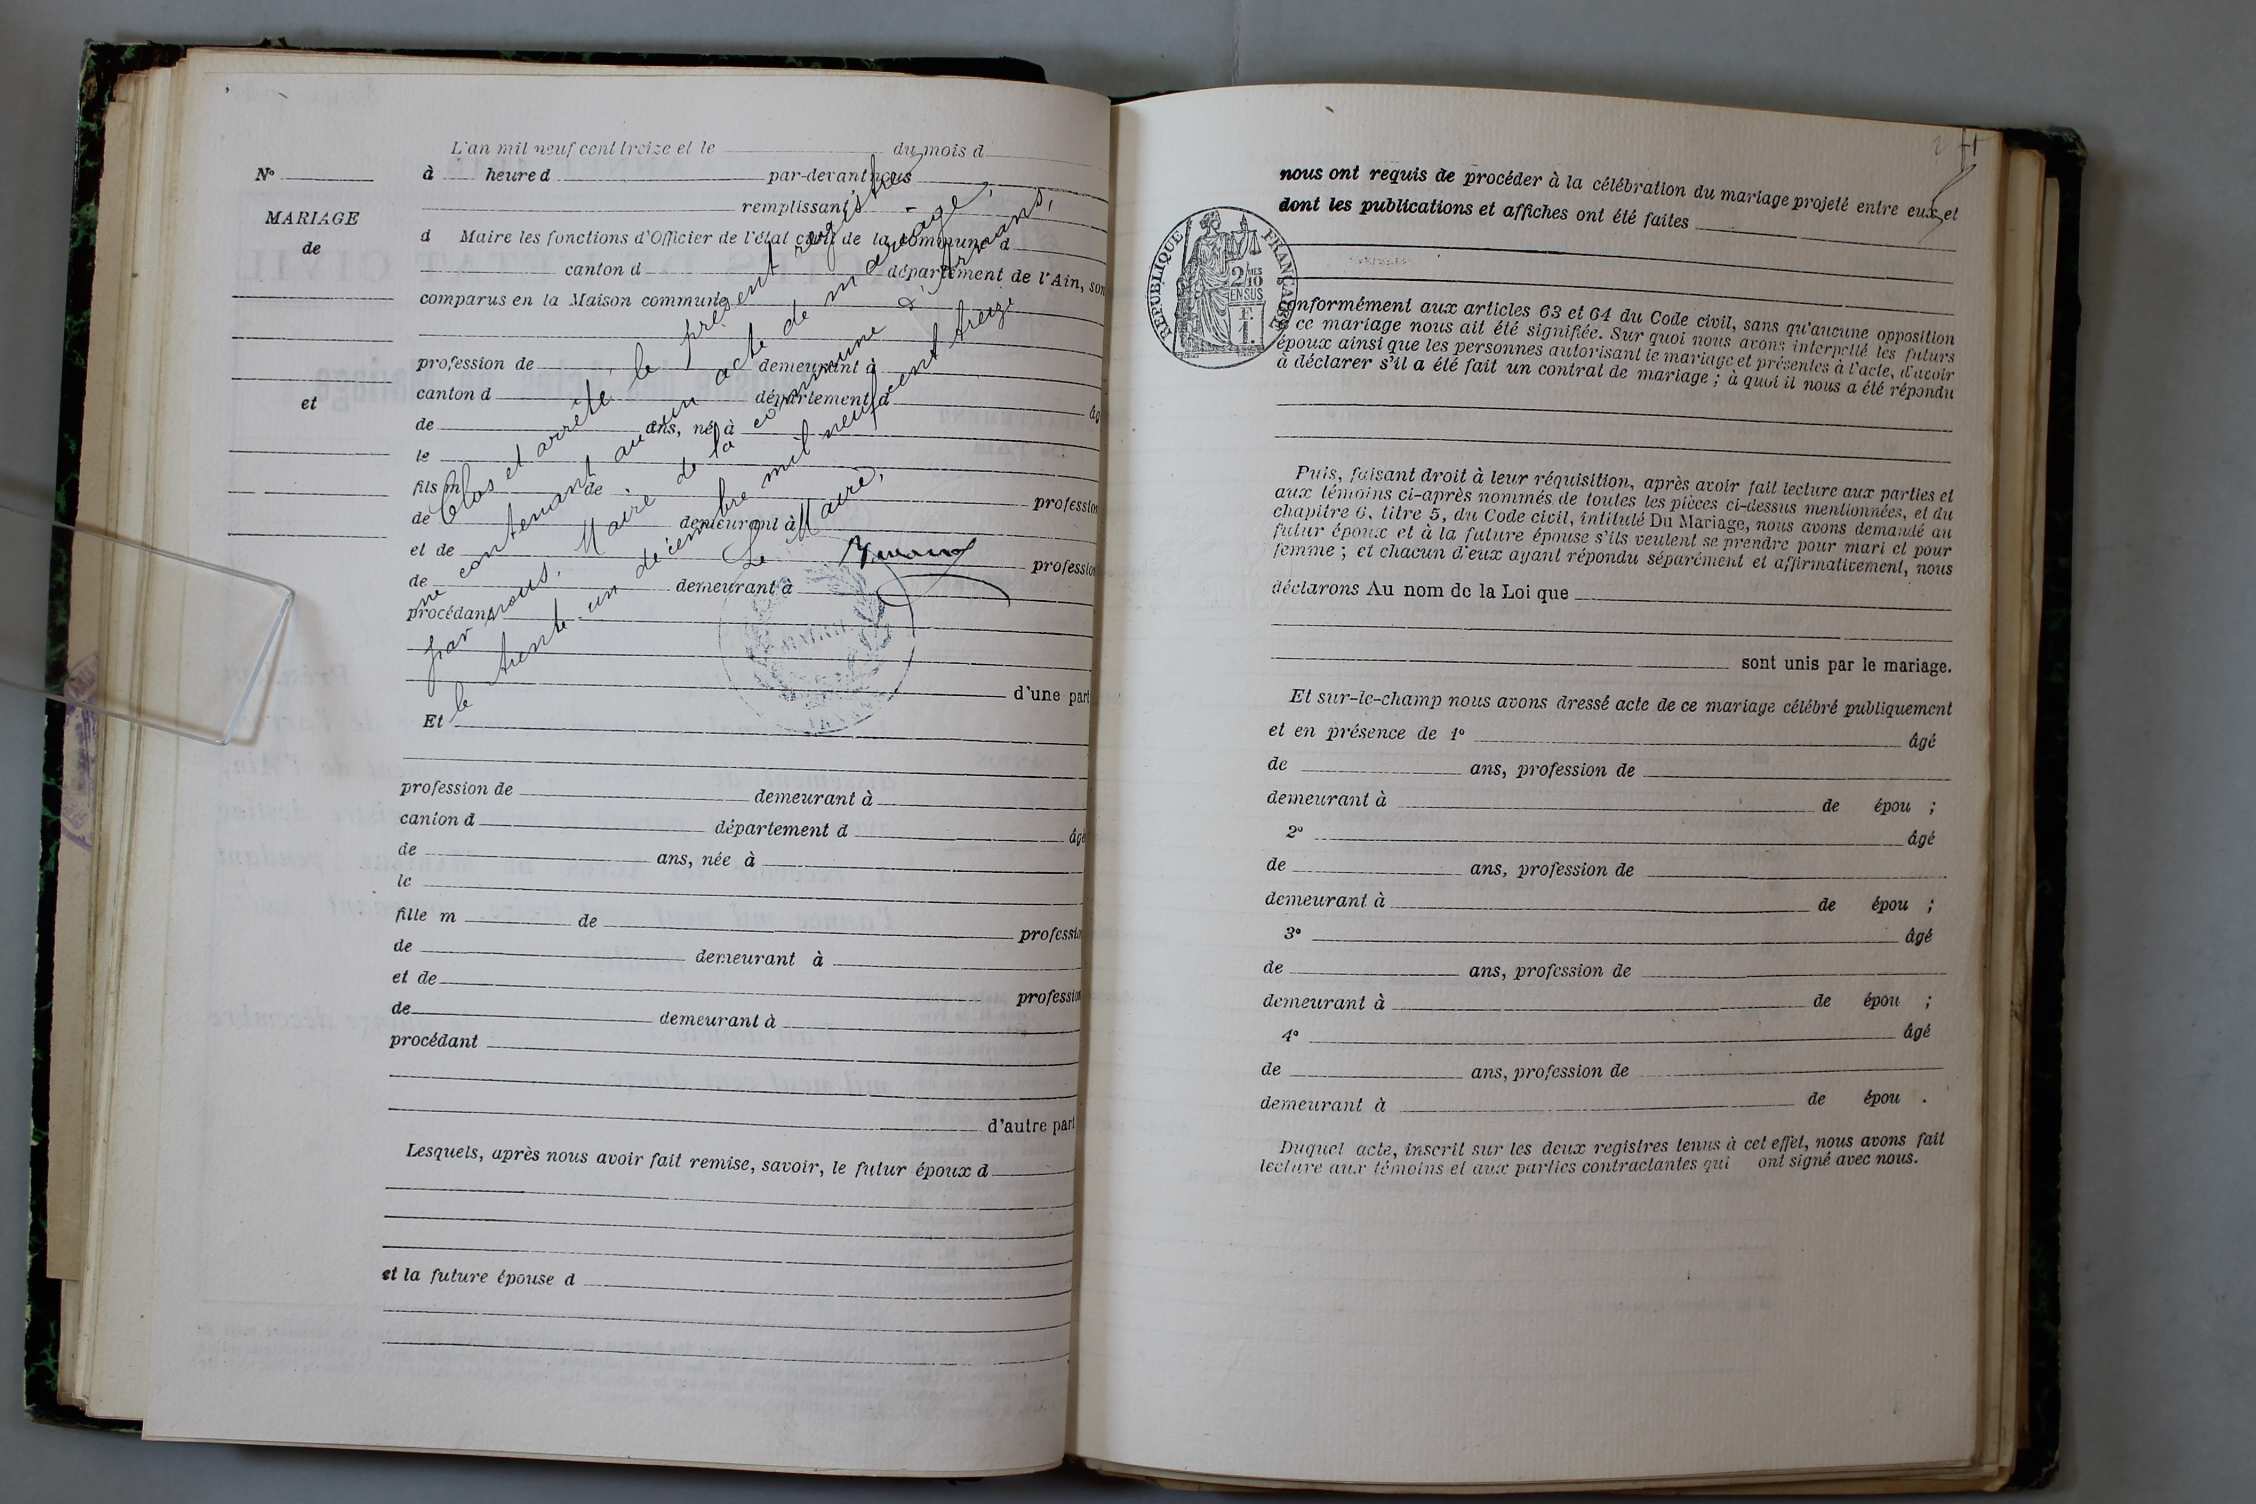 L'an mil neuf cent treize et le du mois d
N° à heure d par-devant nous
MARIAGE
de
et
remplissant
d Maire les fonctions d'Officier de l'état civil de la commune d
canton d département de l'Ain, son
comparus en la Maison commune
profession de demeurant à
canton d département d âg
de ans, né à
le
fils m de profession
de demeurant à
et de profession
de demeurant à
procédant
d'une part
Et
profession de demeurant à
canton d département d âgé
de ans, née à
le
fille m de profession
de demeurant à
et de profession
de demeurant à
procédant
d'autre part
Lesquels, après nous avoir fait remise, savoir, le futur époux d
et la future épouse d
Clos et arrêté le présent registre
ne contenant aucun acte de mariage,
par nous, Maire de la commune d'
le trente-un décembre mil neuf cent treize
Le Maire,
nous ont requis de procéder à la célébration du mariage projeté entre eux et
dont les publications et affiches ont été faites
RÉPUBLIQUE FRANÇAISE
2/10
EN SUS
F.
1.
conformément aux articles 63 et 64 du Code civil, sans qu'aucune opposition
à ce mariage nous ait été signifiée. Sur quoi nous avons interpellé les futurs
époux ainsi que les personnes autorisant le mariage et présentes à l'acte, d'avoir
à déclarer s'il a été fait un contrat de mariage ; à quoi il nous a été répondu
Puis, faisant droit à leur réquisition, après avoir fait lecture aux parties et
aux témoins ci-après nommés de toutes les pièces ci-dessus mentionnées, et du
chapitre 6, titre 5, du Code civil, intitulé Du Mariage, nous avons demandé au
futur époux et à la future épouse s'ils veulent se prendre pour mari et pour
femme ; et chacun d'eux ayant répondu séparément et affirmativement, nous
déclarons Au nom de la Loi que
sont unis par le mariage.
Et sur-le-champ nous avons dressé acte de ce mariage célébré publiquement
et en présence de 1° âgé
de ans, profession de
demeurant à de épou ;
2° âgé
de ans, profession de
demeurant à de épou ;
3° âgé
de ans, profession de
demeurant à de épou ;
4° âgé
de ans, profession de
demeurant à de épou .
Duquel acte, inscrit sur les deux registres tenus à cet effet, nous avons fait
lecture aux témoins et aux parties contractantes qui ont signé avec nous.